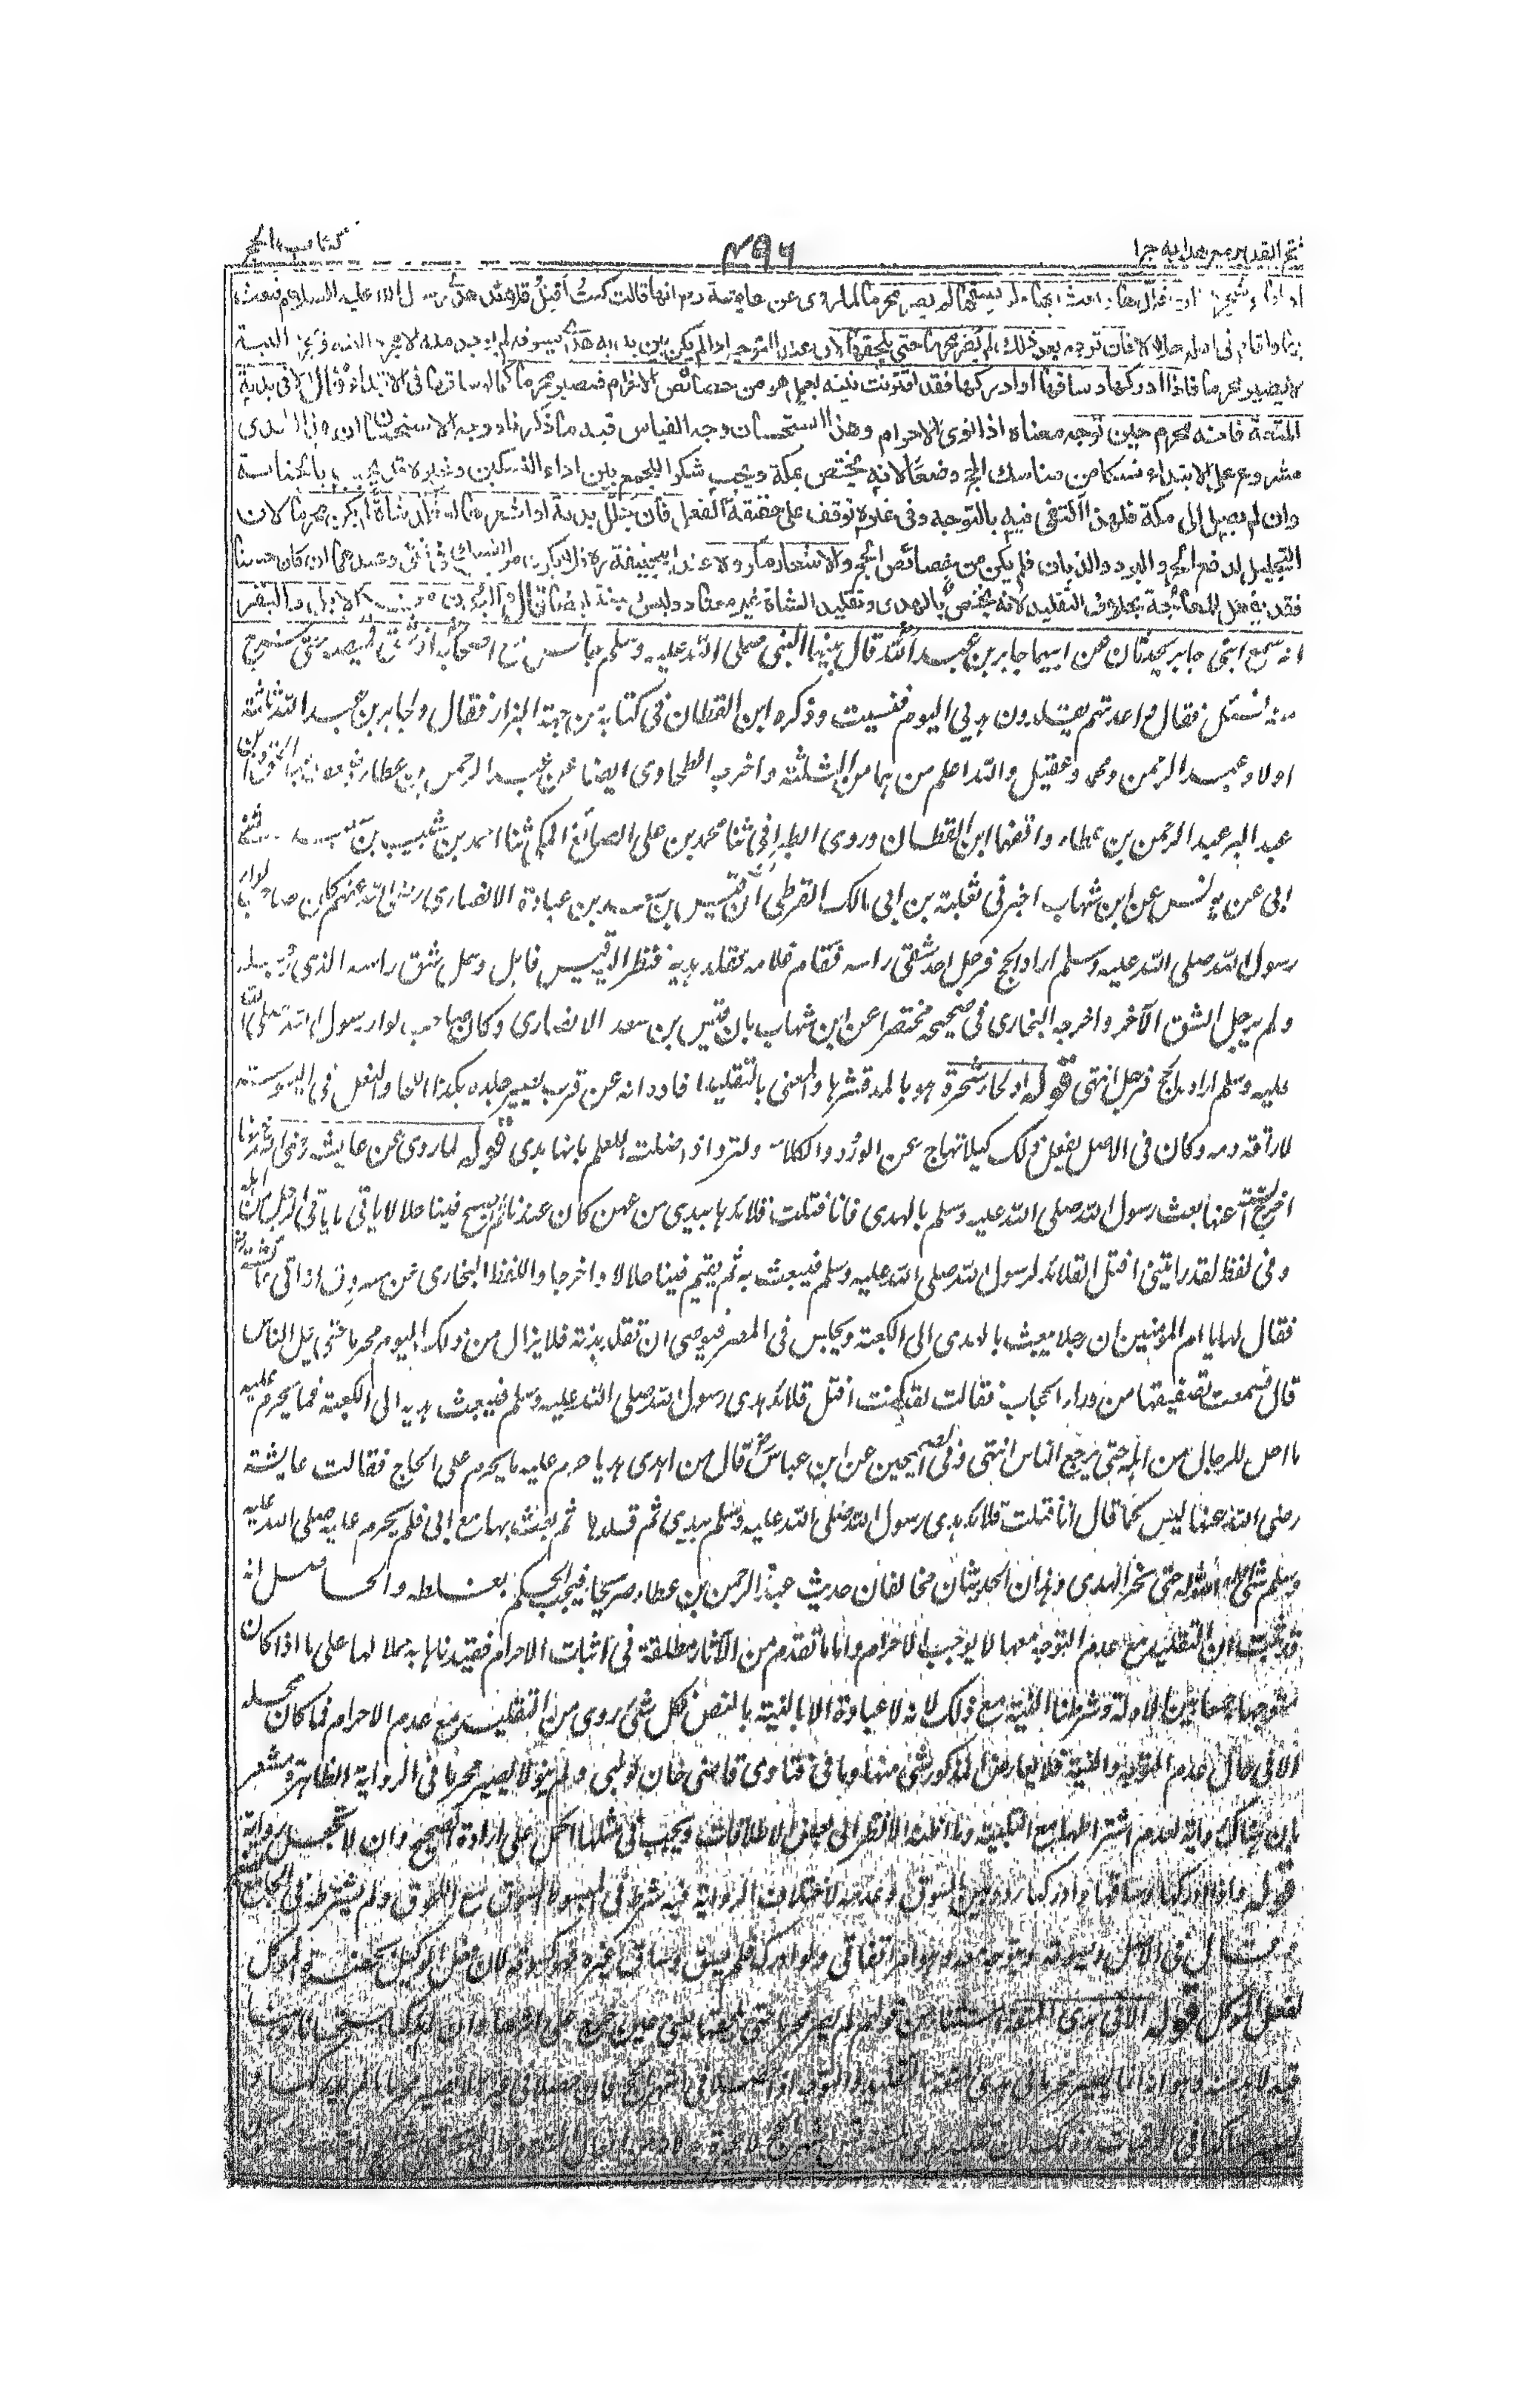 فتح القدير مع هدايه جرا
۴۹۶
كتاب الحج
عن عايشة رض انها قالت كنت أفتل قلائد هدى رسول الله عليه السلام فبعث
بها واقام فى اهله حلالا فان توجه بعد ذلك لم يصر محرما حتى يلحقها لان عند التوجه اذا لم يكن بين يديه هدى يسوقه لم يوجد منه الا مجرد النية وبمجرد النية
لا يصير محرما فاذا ادركها وساقها او ادركها فقد اقترنت نيته بعمل هو من خصائص الاحرام فيصير محرما كما لو ساقها فى الابتداء قال الا فى بدنة
المتعة فانه محرم حين توجه معناه اذا نوى الاحرام وهذا استحسان وجه القياس فيه ما ذكرناه ووجه الاستحسان ان هذا الهدى
مشروع على الابتداء نسكا من مناسك الحج وضعا لانه يختص بمكة ويجب شكرا للجمع بين اداء النسكين وغيره قد يجب بالجناية
وان لم يصل الى مكة فلهذا اكتفى فيه بالتوجه وفى غيره توقف على حقيقة الفعل فان جلل بدنة او اشعرها او قلد شاة لم يكن محرما لان
التجليل لدفع الحر والبرد والذبان فلم يكن من خصائص الحج والاشعار مكروه عند ابي حنيفة ره فلا يكون من النسك فى شئ وعندهما ان كان حسنا
فقد يفعل للمعالجة بخلاف التقليد لانه يختص بالهدى وتقليد الشاة غير معتاد وليس بسنة ايضا قال والبدن من الابل والبقر
انه سمع ابنى جابر يحدثان عن ابيهما جابر بن عبد الله قال بينما النبى صلى الله عليه وسلم جالس مع اصحابه اذ شق قميصه حتى خرج
منه فسئل فقال واعدتهم يقلدون هديى اليوم فنسيت وذكره ابن القطان فى كتابه من جهة البزار فقال ولجابر بن عبد الله ثلثة
اولاد عبد الرحمن ومحمد وعقيل والله اعلم من هما من الثلثة واخرجه الطحاوى ايضا عن عبد الرحمن بن عطاء وضعف
عبد البر عبد الرحمن بن عطاء ووافقهما ابن القطان وروى الطبرانى ثنا محمد بن على الصائغ المكى ثنا احمد بن شبيب بن سعيد ثنى
ابى عن يونس عن ابن شهاب اخبرنى ثعلبة بن ابى مالك القرظى أن قيس بن سعد بن عبادة الانصارى رضى الله عنهم كان صاحب لواء
رسول الله صلى الله عليه وسلم اراد الحج فرجل احد شقى راسه فقام غلامه فقلد هديه فنظر اليه قيس فاهل وحل شق راسه الذى رجله
ولم يرجل الشق الآخر واخرجه البخارى فى صحيحه مختصرا عن ابن شهاب بان قيس بن سعد الانصارى وكان صاحب لواء رسول الله صلى الله
عليه وسلم اراد الحج فرجل انتهى قوله او لحاء شجرة هو بالمد قشرها والمعنى بالتقليد افادة انه عن قرب يصير جلده كهذا اللحاء والنعل فى اليبوسة
لاراقة دمه وكان فى الاصل يفعل ذلك كيلا تهاج عن الورد والكلاء ولترد اذا ضلت للعلم بانها هدى قوله لما روى عن عايشة رضى الله عنها
اخرج الستة عنها بعث رسول الله صلى الله عليه وسلم بالهدى فانا فتلت قلائدها بيدى من عهن كان عندنا ثم اصبح فينا حلالا ياتى ما ياتى الرجل من اهله
وفى لفظ لقد رايتنى افتل القلائد لرسول الله صلى الله عليه وسلم فيبعث به ثم يقيم فينا حلالا واخرجا واللفظ للبخارى عن مسروق انه اتى عائشة
فقال لها يا ام المؤمنين ان رجلا يبعث بالهدى الى الكعبة ويجلس فى المصر فيوصى ان تقلد بدنته فلا يزال من ذلك اليوم محرما حتى يحل الناس
قال فسمعت تصفيقها من وراء الحجاب فقالت لقد كنت افتل قلائد هدى رسول الله صلى الله عليه وسلم فيبعث هديه الى الكعبة فما يحرم عليه
ما احل للرجال من اهله حتى يرجع الناس انتهى وفى الصحيحين عن ابن عباس رض قال من اهدى هديا حرم عليه ما يحرم على الحاج فقالت عايشة
رضى الله عنها ليس كما قال انا فتلت قلائد هدى رسول الله صلى الله عليه وسلم بيدى ثم قلدها ثم بعث بها مع ابى فلم يحرم عليه صلى الله عليه
وسلم شئ احله الله له حتى نحر الهدى وهذان الحديثان يخالفان حديث عبد الرحمن بن عطاء صريحا فيجب الحكم بغلطه والحاصل انه
قد ثبت ان التقليد مع عدم التوجه معها لا يوجب الاحرام واما ما تقدم من الآثار مطلقة فى اثبات الاحرام فقيدناها به حملا لها على ما اذا كان
متوجها جمعا بين الادلة وشرطنا النية مع ذلك لانه لا عبادة الا بالنية بالنص فكل شئ روى من التقليد مع عدم الاحرام فما كان محله
الا فى حال عدم التوجه والنية فلا يعارض المذكور شئ منها وما فى فتاوى قاضى خان لو لبى ولم ينو لا يصير محرما فى الرواية الظاهرة مشعر
بان هناك رواية بعدم اشتراطها مع التلبية وما اظنه الا نظر الى بعض الاطلاقات ويجب فى مثلها الحمل على ارادة الصحيح وان لا تجعل رواية
قوله فاذا ادركها وساقها او ادركها ردد بين السوق وعدمه لاختلاف الرواية فيه شرط فى المبسوط السوق مع اللحوق ولم يشترطه فى الجامع
فى الاصل ويسوقه ويتوجه معه وهو امر اتفاقى ولو ادركه فلم يسق وساق غيره فهو كسوقه لان فعل الوكيل بحضرة الموكل
كفعل الموكل قوله الا فى هدى المتعة استثناء من قوله لم يصر محرما حتى يلحقها